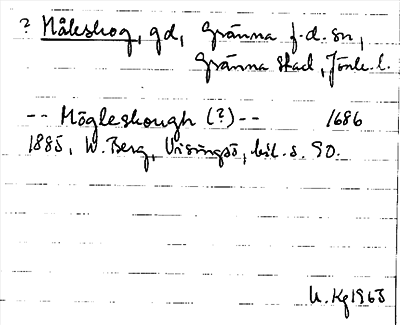 ? Måleskog, gd, Gränna f.d. sn,
Gränna stad, Jönk. l.
-- Mögleskough (?) -- 1686
1885, W. Berg, Visingsö, bil. s. 90.
U. Kg 1963